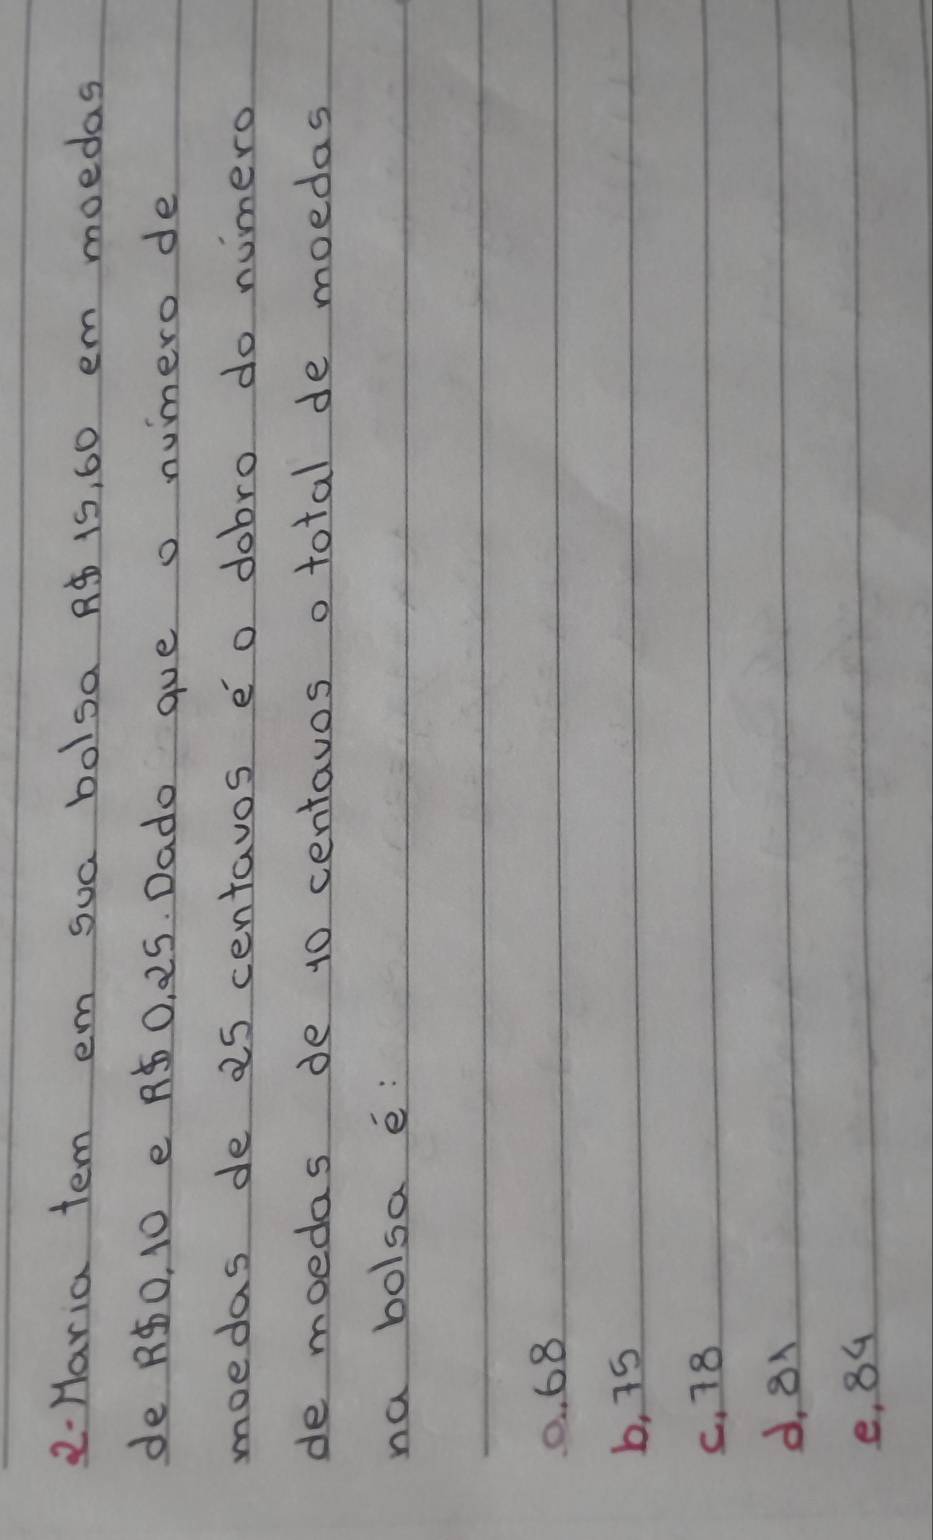 2-Maria tem em sua bolsa R$ 15,60 em moedas
de R$0,10 e R$ 0,25. Dado que o número de
moedas de 25 centavos é o dobro do número
de moedas de 10 centavos o total de moedas
na bolsa é:
a, 68
b, 75
c, 78
d, 81
e, 84